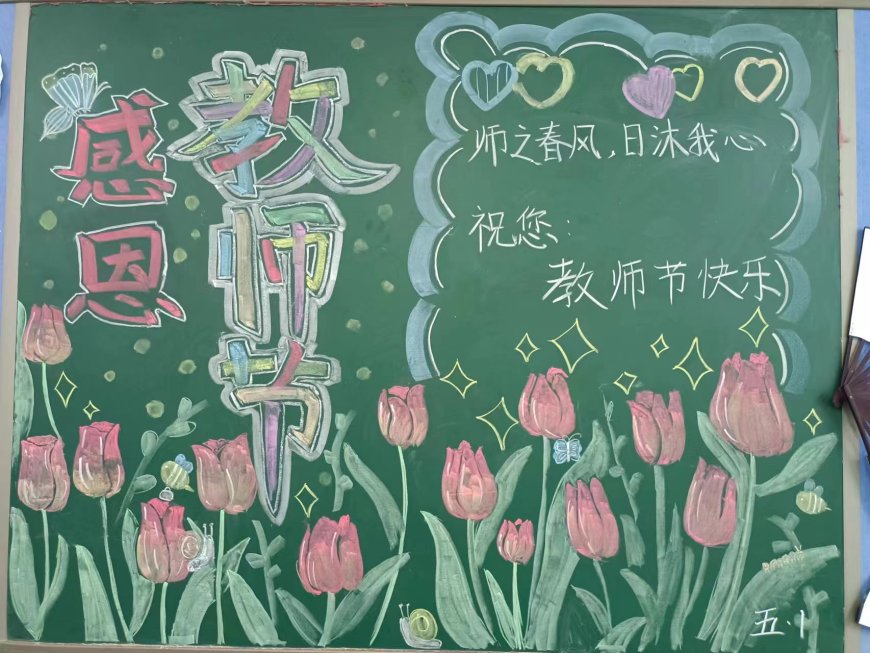 感恩
教师节
师之春风,日沐我心
祝您:
教师节快乐
五.1